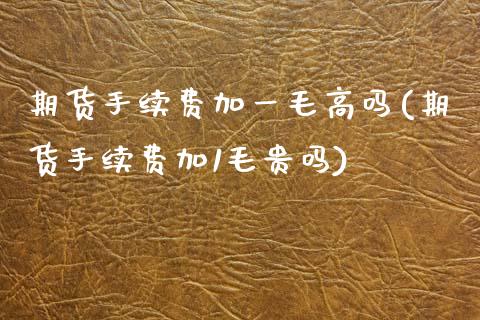 期货手续费加一毛高吗(期
货手续费加1毛贵吗)